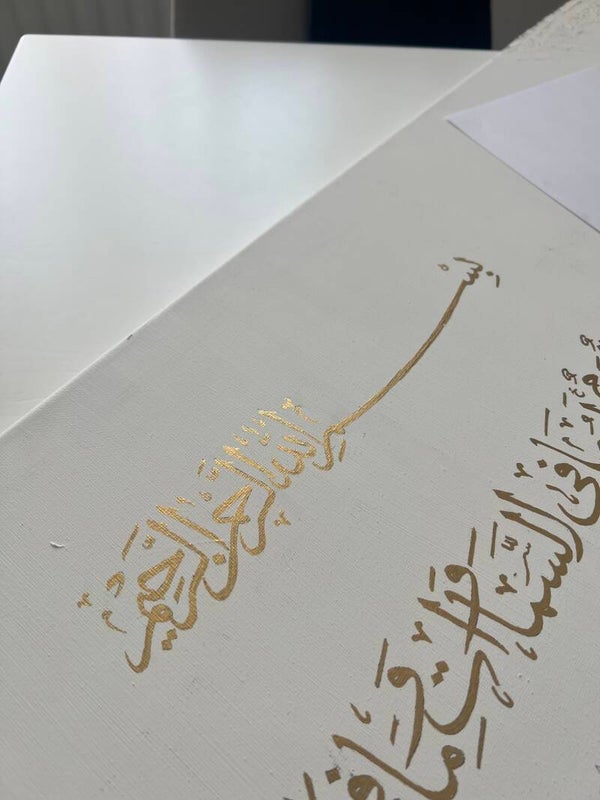 بِسْمِ اللّٰهِ الرَّحْمٰنِ الرَّحِيمِ
فِي السَّمَاوَاتِ وَمَا فِي